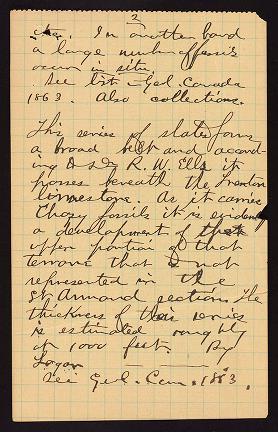 2
In another band
a large number
occur in situ.
See list - Geol. Canada
1863. Also collections.
This series of slates forms
a broad belt and accord
ing to Dr R. W. Ells it
passes beneath the Trenton
limestone. As it carries
fossils it is evidently
a development of that
upper portion of that
terrane that is not
represented in the
St Armand section. The
thickness of this series
is estimated roughly
at 1000 feet. By
Logan
Geol. Can. 1863.